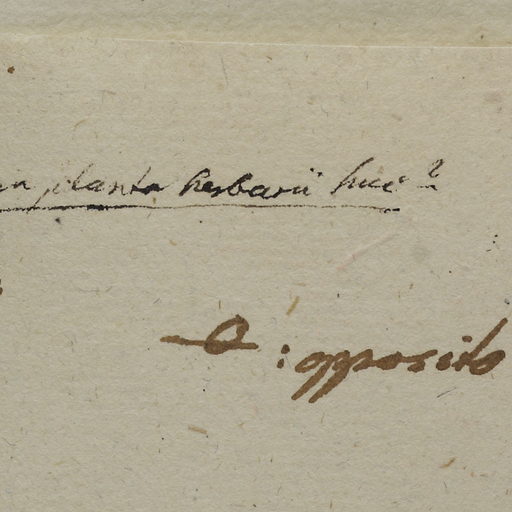 planta herbarii huc?
: opposito